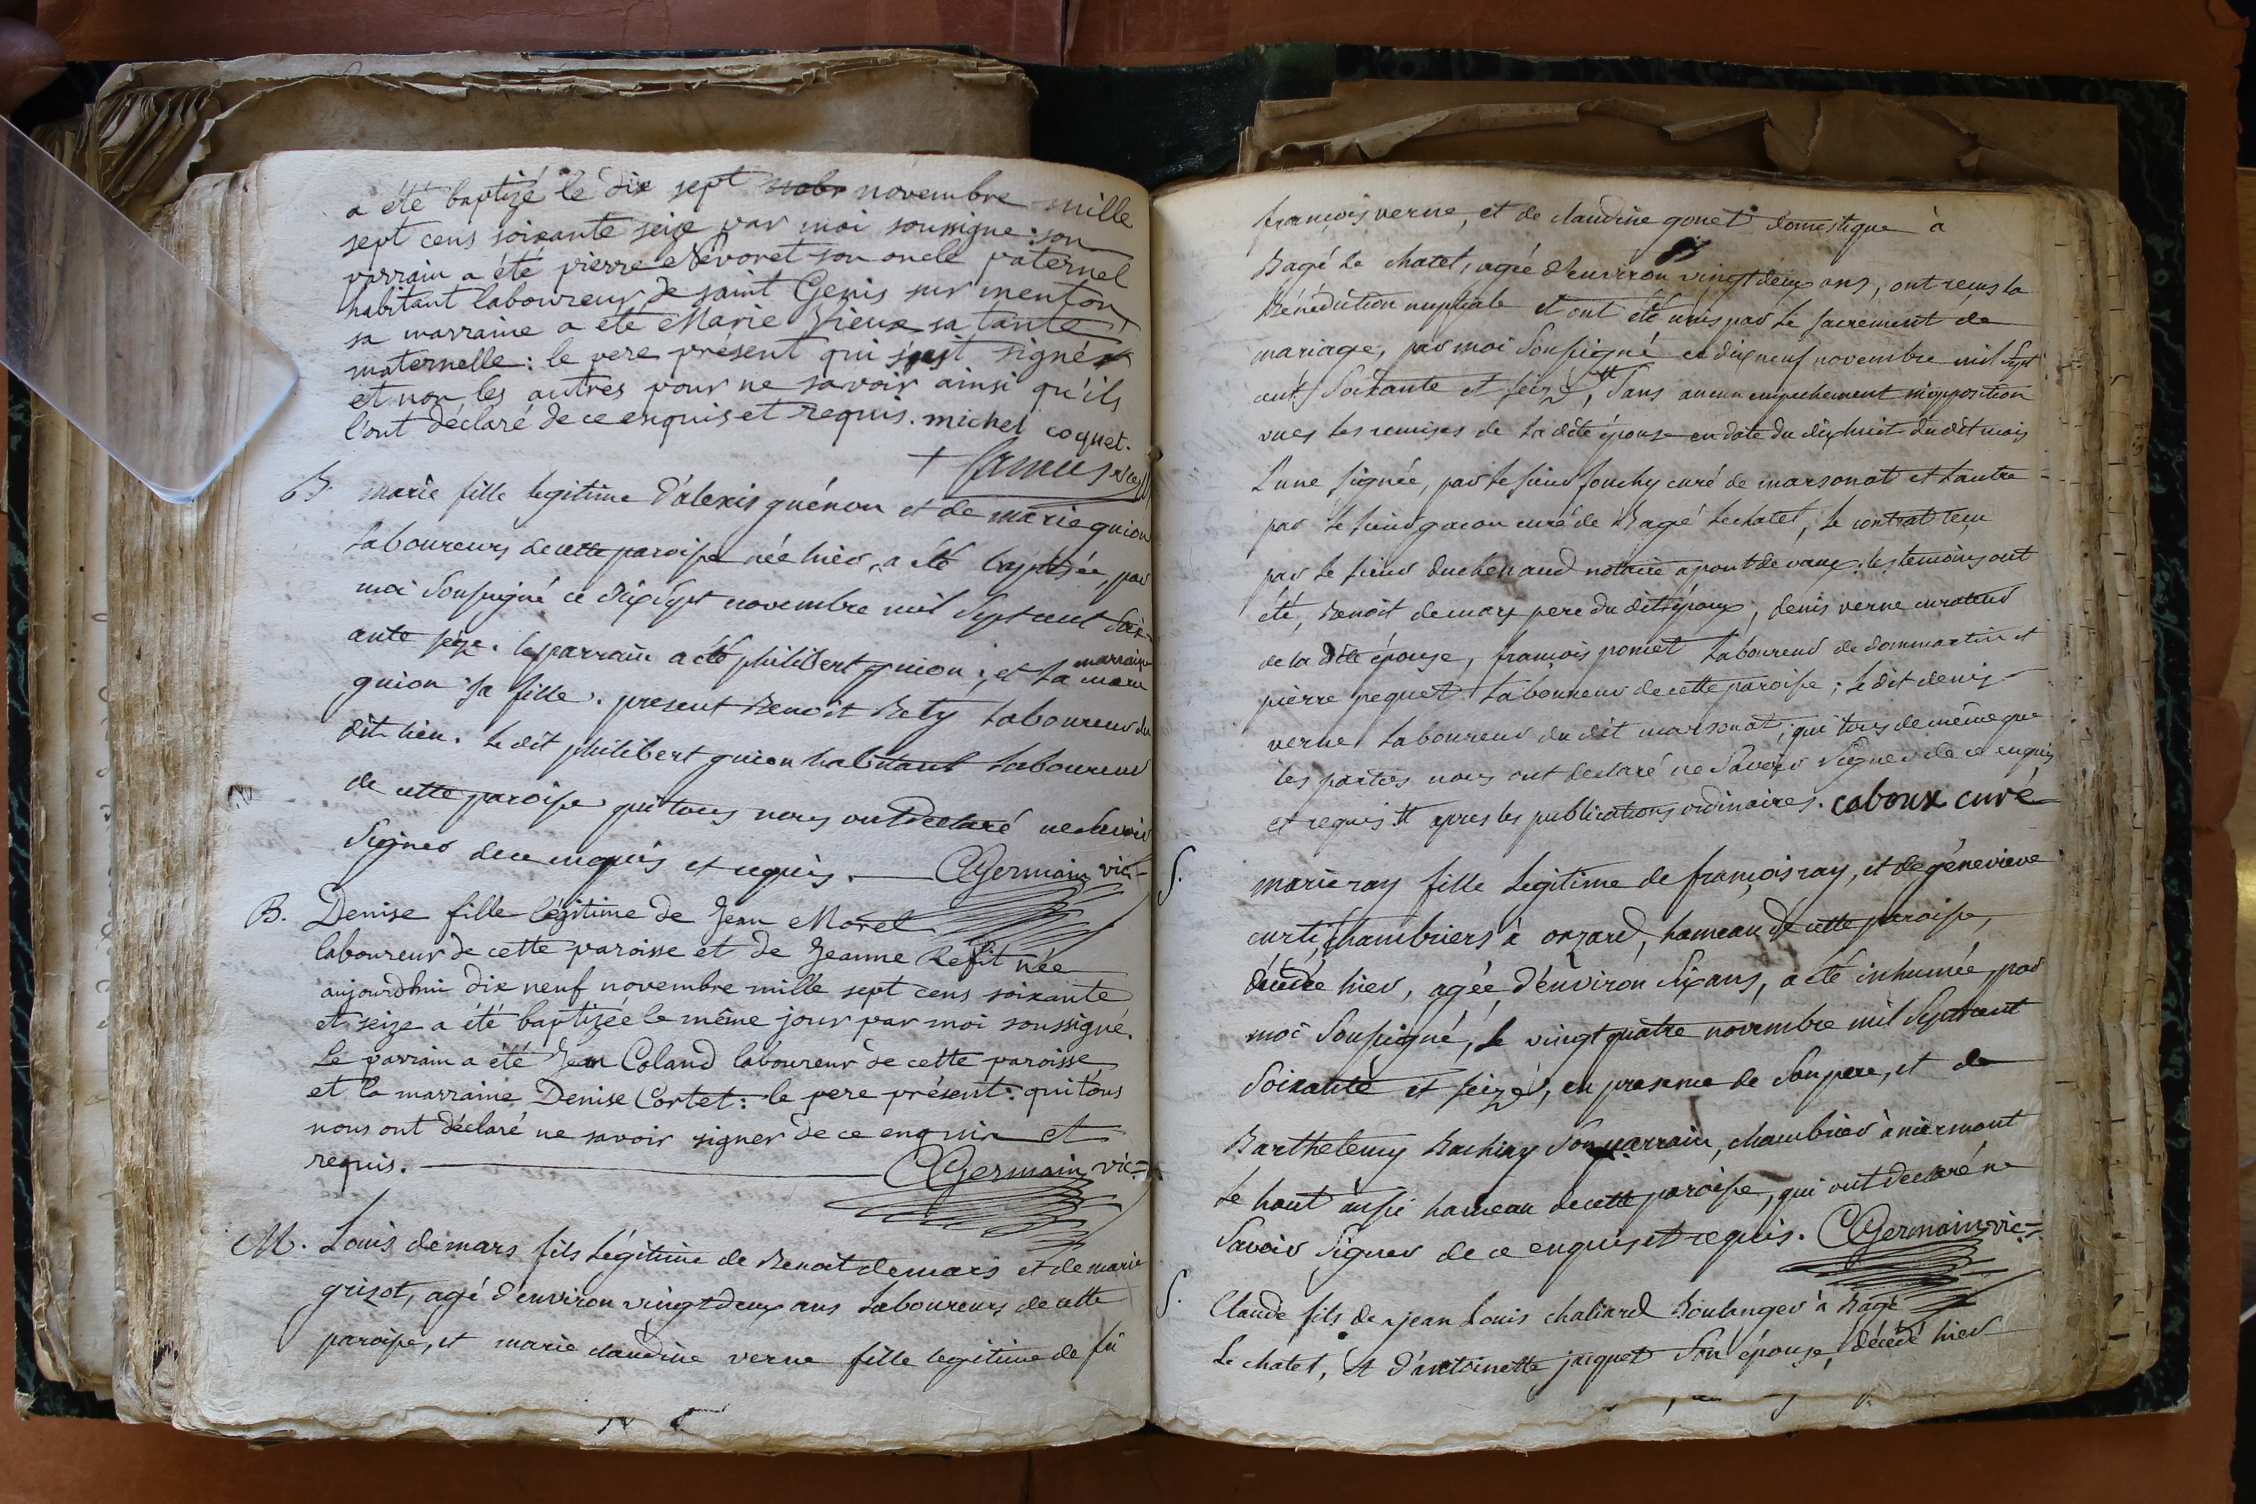 a été baptizé le dix sept nobr novembre mille
sept cens soixante seize par moi soussigné : son
parrain a été pierre Nevoret son oncle paternel
habitant laboureur de saint Genis sur menton
sa marraine a été Marie Vieux sa tante
maternelle : le pere présent qui s'est signé
et non les autres pour ne savoir ainsi qu'ils
l'ont déclaré de ce enquis et requis. michel coquet.
B. marie fille legitime d'alexis guénon et de marie guion
Laboureurs de cette paroisse née hier, a été baptisée, par
moi Soussigné ce dix Sept novembre mil Sept cent Soix-
ante seize. le parrain a été philibert guion ; et La marraine marie
guion Sa fille. present Benoît Rety Laboureur du
dit lieu. Le dit philibert guion habitant Laboureur
de cette paroisse qui tous nous ont declaré ne Savoir
Signer de ce enquis et requis. CGermain vic-
B. Denise fille légitime de Jean Morel
laboureur de cette paroisse et de Jeanne Refit née
aujourdhui dix neuf novembre mille sept cens soixante
et seize a été baptizée le même jour par moi soussigné.
Le parrain a été Jean Coland laboureur de cette paroisse
et la marraine Denise Cortet : le pere présent : qui tous
nous ont déclaré ne savoir signer de ce enquis et
requis. CGermain vic=
M. Louis demars fils Légitime de Benoit demars et de marie
grizot, agé d'environ vingt deux ans Laboureurs de cette
paroisse, et marie claudine verne fille legitime de fû
françois verne, et de claudine gonet domestique à
Bagé Le chatel, agée d'environ vingt deux ans, ont reçus la
Bénédiction nuptiale et ont été unis par Le Sacrement de
mariage, par moi Soussigné ce dix neuf novembre mil Sept
cent Soixante et Seize, tt Sans aucun empechement n'opposition
vues les remises de La dite épouse en date du dix huit du dit mois
L'une Signée, par Le Sieur fouchy curé de marsonat et L'autre
par Le Sieur gacon curé de Bagé Lechatel, Le contrat reçu
par Le Sieur duchenaud nottaire a pont de vaux. les temoins ont
été, Benoit demars pere du dit époux, denis verne curateur
de la dite épouse, françois ponset Laboureur de dommartin et
pierre pequet Laboureur de cette paroisse ; Le dit denis
verne Laboureur du dit marsonat ; qui tous de même que
les parties nous ont declaré ne Savoir Signer de ce enquis
et requis tt apres les publications ordinaires. caboux curé
S. marie ray fille Legitime de françois ray, et de génevieve
curti chambriers à onzard, hameau de cette paroisse,
décédée hier, agée d'environ Six ans, a été inhumée, par
moi Soussigné, Le vingt quatre novembre mil Sept cent
Soixante et Seize, en presence de Son pere, et de
Barthelemy Son parrain, chambrier à niermont
Le haut aussi hameau de cette paroisse, qui ont declaré ne
Savoir Signer de ce enquis et requis. CGermain vic=
S. Claude fils de jean Louis chaliard Boulanger à Bagé
Le chatel, et d'antoinette jacquet Son épouse, décédé hier